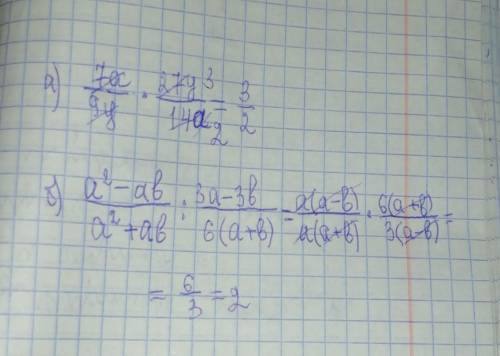 а) 7a/9y · 27y/14a = 3/2
б) a² - ab / a² + ab : 3a - 3b / 6(a+b) = a(a-b)/a(a+b) · 6(a+b)/3(a-b) =
= 6/3 = 2